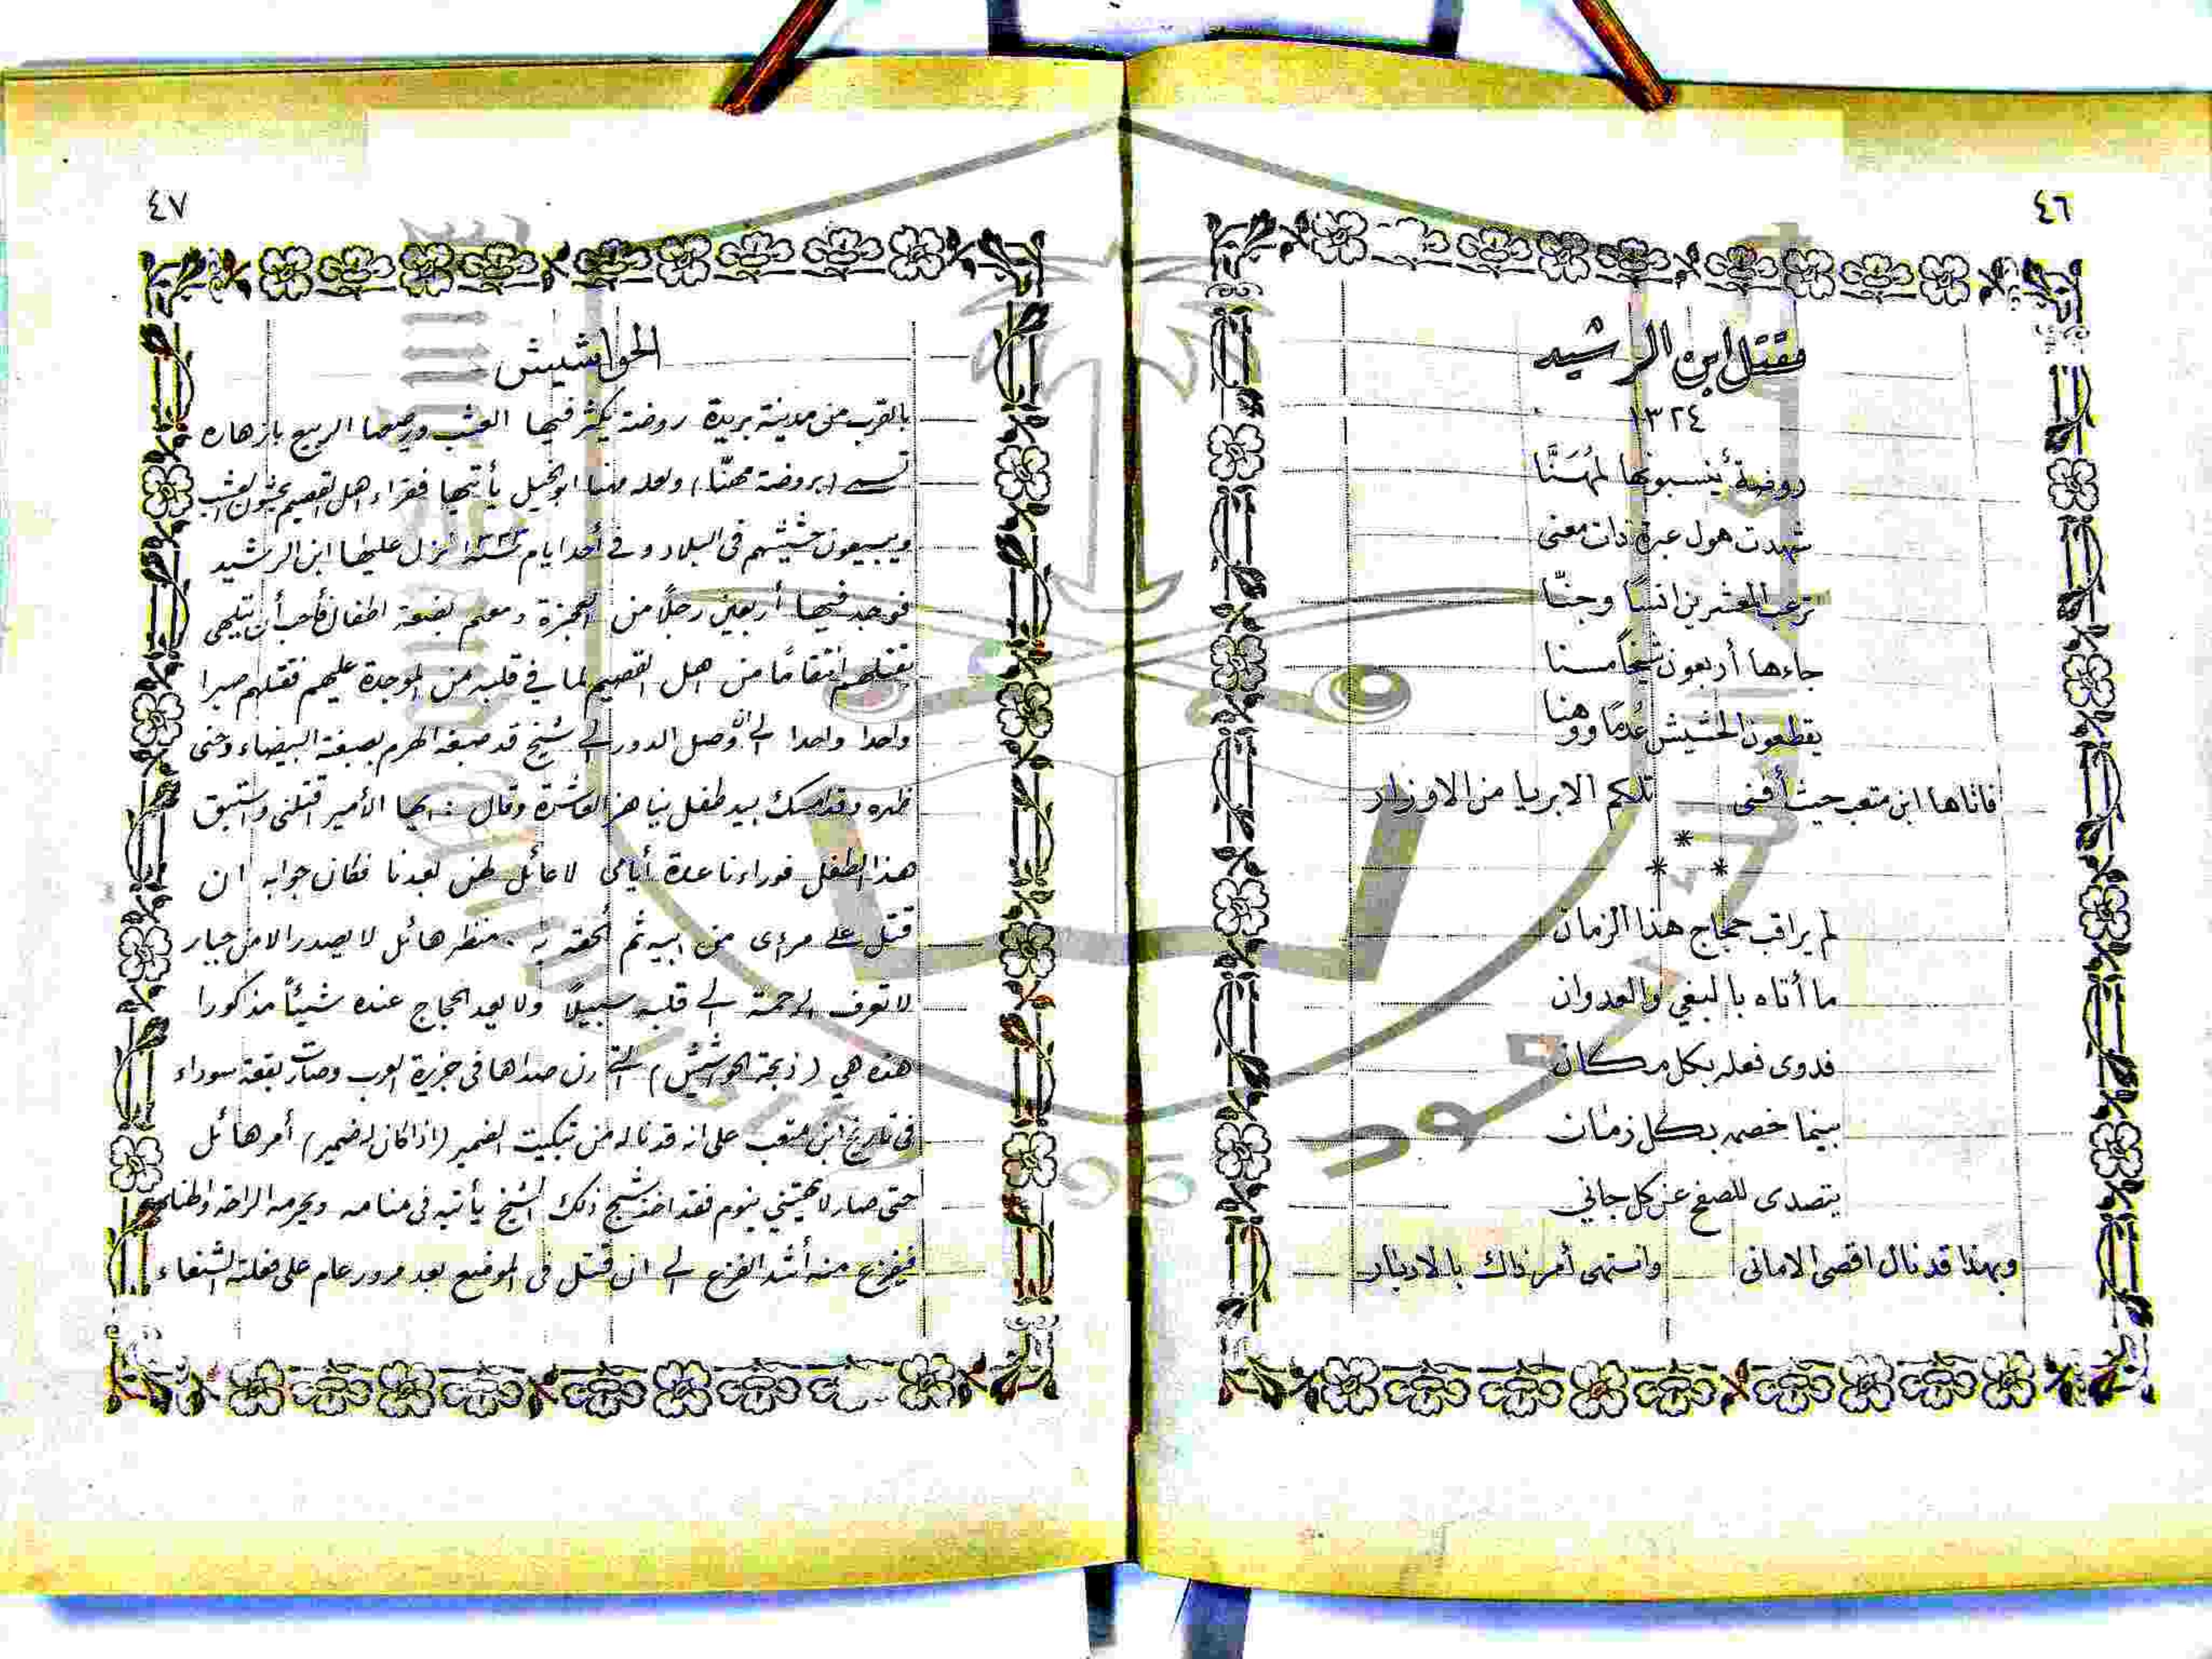 ٤٦
مقتل ابن الرشيد
١٣٢٤
روضة ينسبونها لمُهَنَّا
شهدت هول عبرة ذات معنى
ترعب المعشرين انسًا وجنّا
جاءها أربعون شيخاً مسنا
يقطعون الحشيش عُدمًا ووهنا
فاتاها ابن متعب حيث أفنى تلكم الابريا من الاوزار
*
* *
لم يراقب حجاج هذا الزمان
ما أتاه بالبغي والعدوان
فدوى فعله بكل مكان
بينما خصمه بكل زمان
يتصدى للصفح عن كل جاني
وبهذا قد نال اقصى الامانى وانتهى أمر ذاك بالادبار
٤٧
الحواشيش
بالقرب من مدينة بريدة روضة يكثر فيها العشب ورصعها الربيع بازهاره
تسمى (بروضة مهنّا) ولعله مهنا ابوالخيل يأتيها فقراء اهل القصيم يحشون العشب
ويبيعون حشيشهم فى البلاد وفى أحد ايام سنة نزل عليها ابن الرشيد
فوجد فيها أربعين رجلًا من العجزة ومعهم بضعة اطفال فأحب أن يتلهى
بقتلهم انتقامًا من اهل القصيم لما في قلبه من الموجدة عليهم فقتلهم صبرا
واحدا واحدا الى ان وصل الدور الى شيخ قد صبغه الهرم بصبغة البيضاء وحنى
ظهره وقد امسك بيد طفل يناهز العاشرة وقال : ايها الأمير اقتلنى واستبق
هذا الطفل فوراءنا عدة أيامى لا عائل لهن بعدنا فكان جوابه ان
قتل على مرءى من ابيه ثم ألحقه به . منظر هائل لا يصدر الا من جبار
لا تعرف الرحمة الى قلبه سبيلًا ولا يعد الحجاج عنده شيئاً مذكورا
هذه هي (ذبحة الحواشيش) التى رن صداها فى جزيرة العرب وصارت بقعة سوداء
فى تاريخ ابن متعب على انه قد ناله من تبكيت الضمير (اذا كان له ضمير) أمر هائل
حتى صار لا يهتني بنوم فقد اخذ شبح ذلك الشيخ يأتيه فى منامه ويحرمه الراحة
فيفزع منه أشد الفزع الى ان قتل فى الموضع بعد مرور عام على فعلته الشنعاء